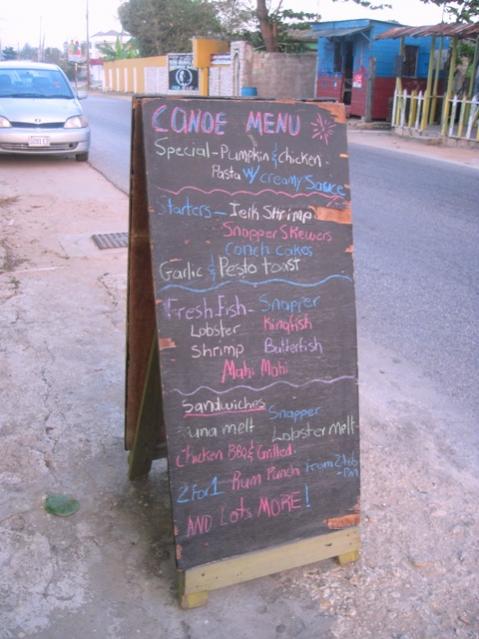 CANOE MENU
Special - Pumpkin & Chicken
Pasta w/ creamy Sauce
Starters - Jerk Shrimp
Snapper Skewers
Conch cakes
Garlic & Pesto toast
Fresh Fish - Snapper
Lobster Kingfish
Shrimp Butterfish
Mahi Mahi
Sandwiches Snapper
Tuna melt Lobster melt
Chicken BBQ & Grilled.
2 for 1 Rum Punch from 2 to 6
pm
AND Lots MORE!